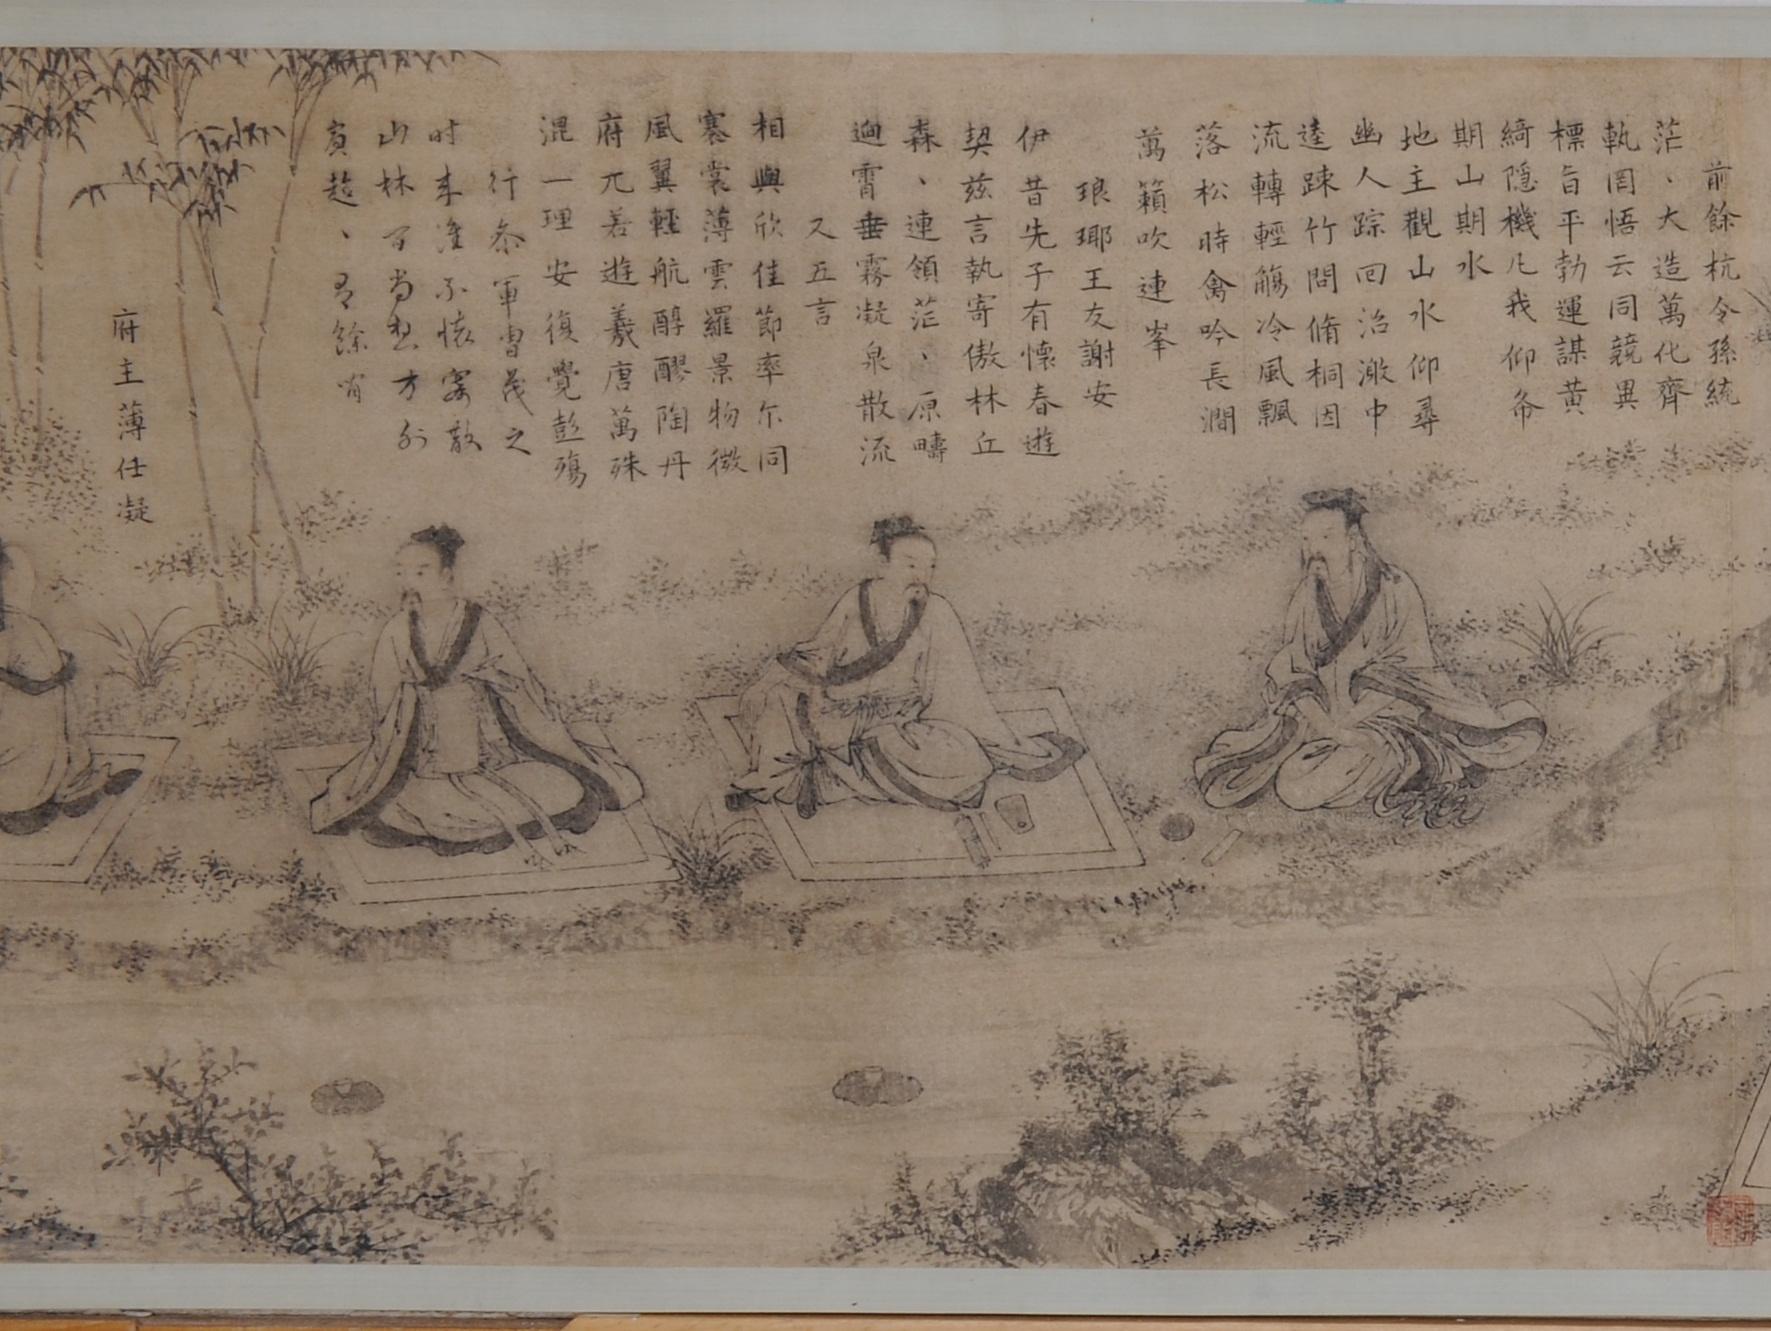 前餘杭令孫統
茫、大造萬化齊
軌罔悟云同競異
標旨平勃運謀黃
綺隱機凡我仰希
期山期水
地主觀山水仰尋
幽人踪回沼激中
逵踈竹間脩桐因
流轉輕觴冷風飄
落松時禽吟長澗
萬籟吹連峯
琅瑘王友謝安
伊昔先子有懷春遊
契茲言執寄傲林丘
森、連領茫、原疇
逈霄垂霧凝泉散流
又五言
相與欣佳節率尔同
褰裳薄雲羅景物微
風翼輕航醇醪陶丹
府兀若遊羲唐萬殊
混一理安復覺彭殤
行叅軍曹茂之
时来誰不懷寄散
山林间尚想方外
賔超、有餘
府主薄任凝